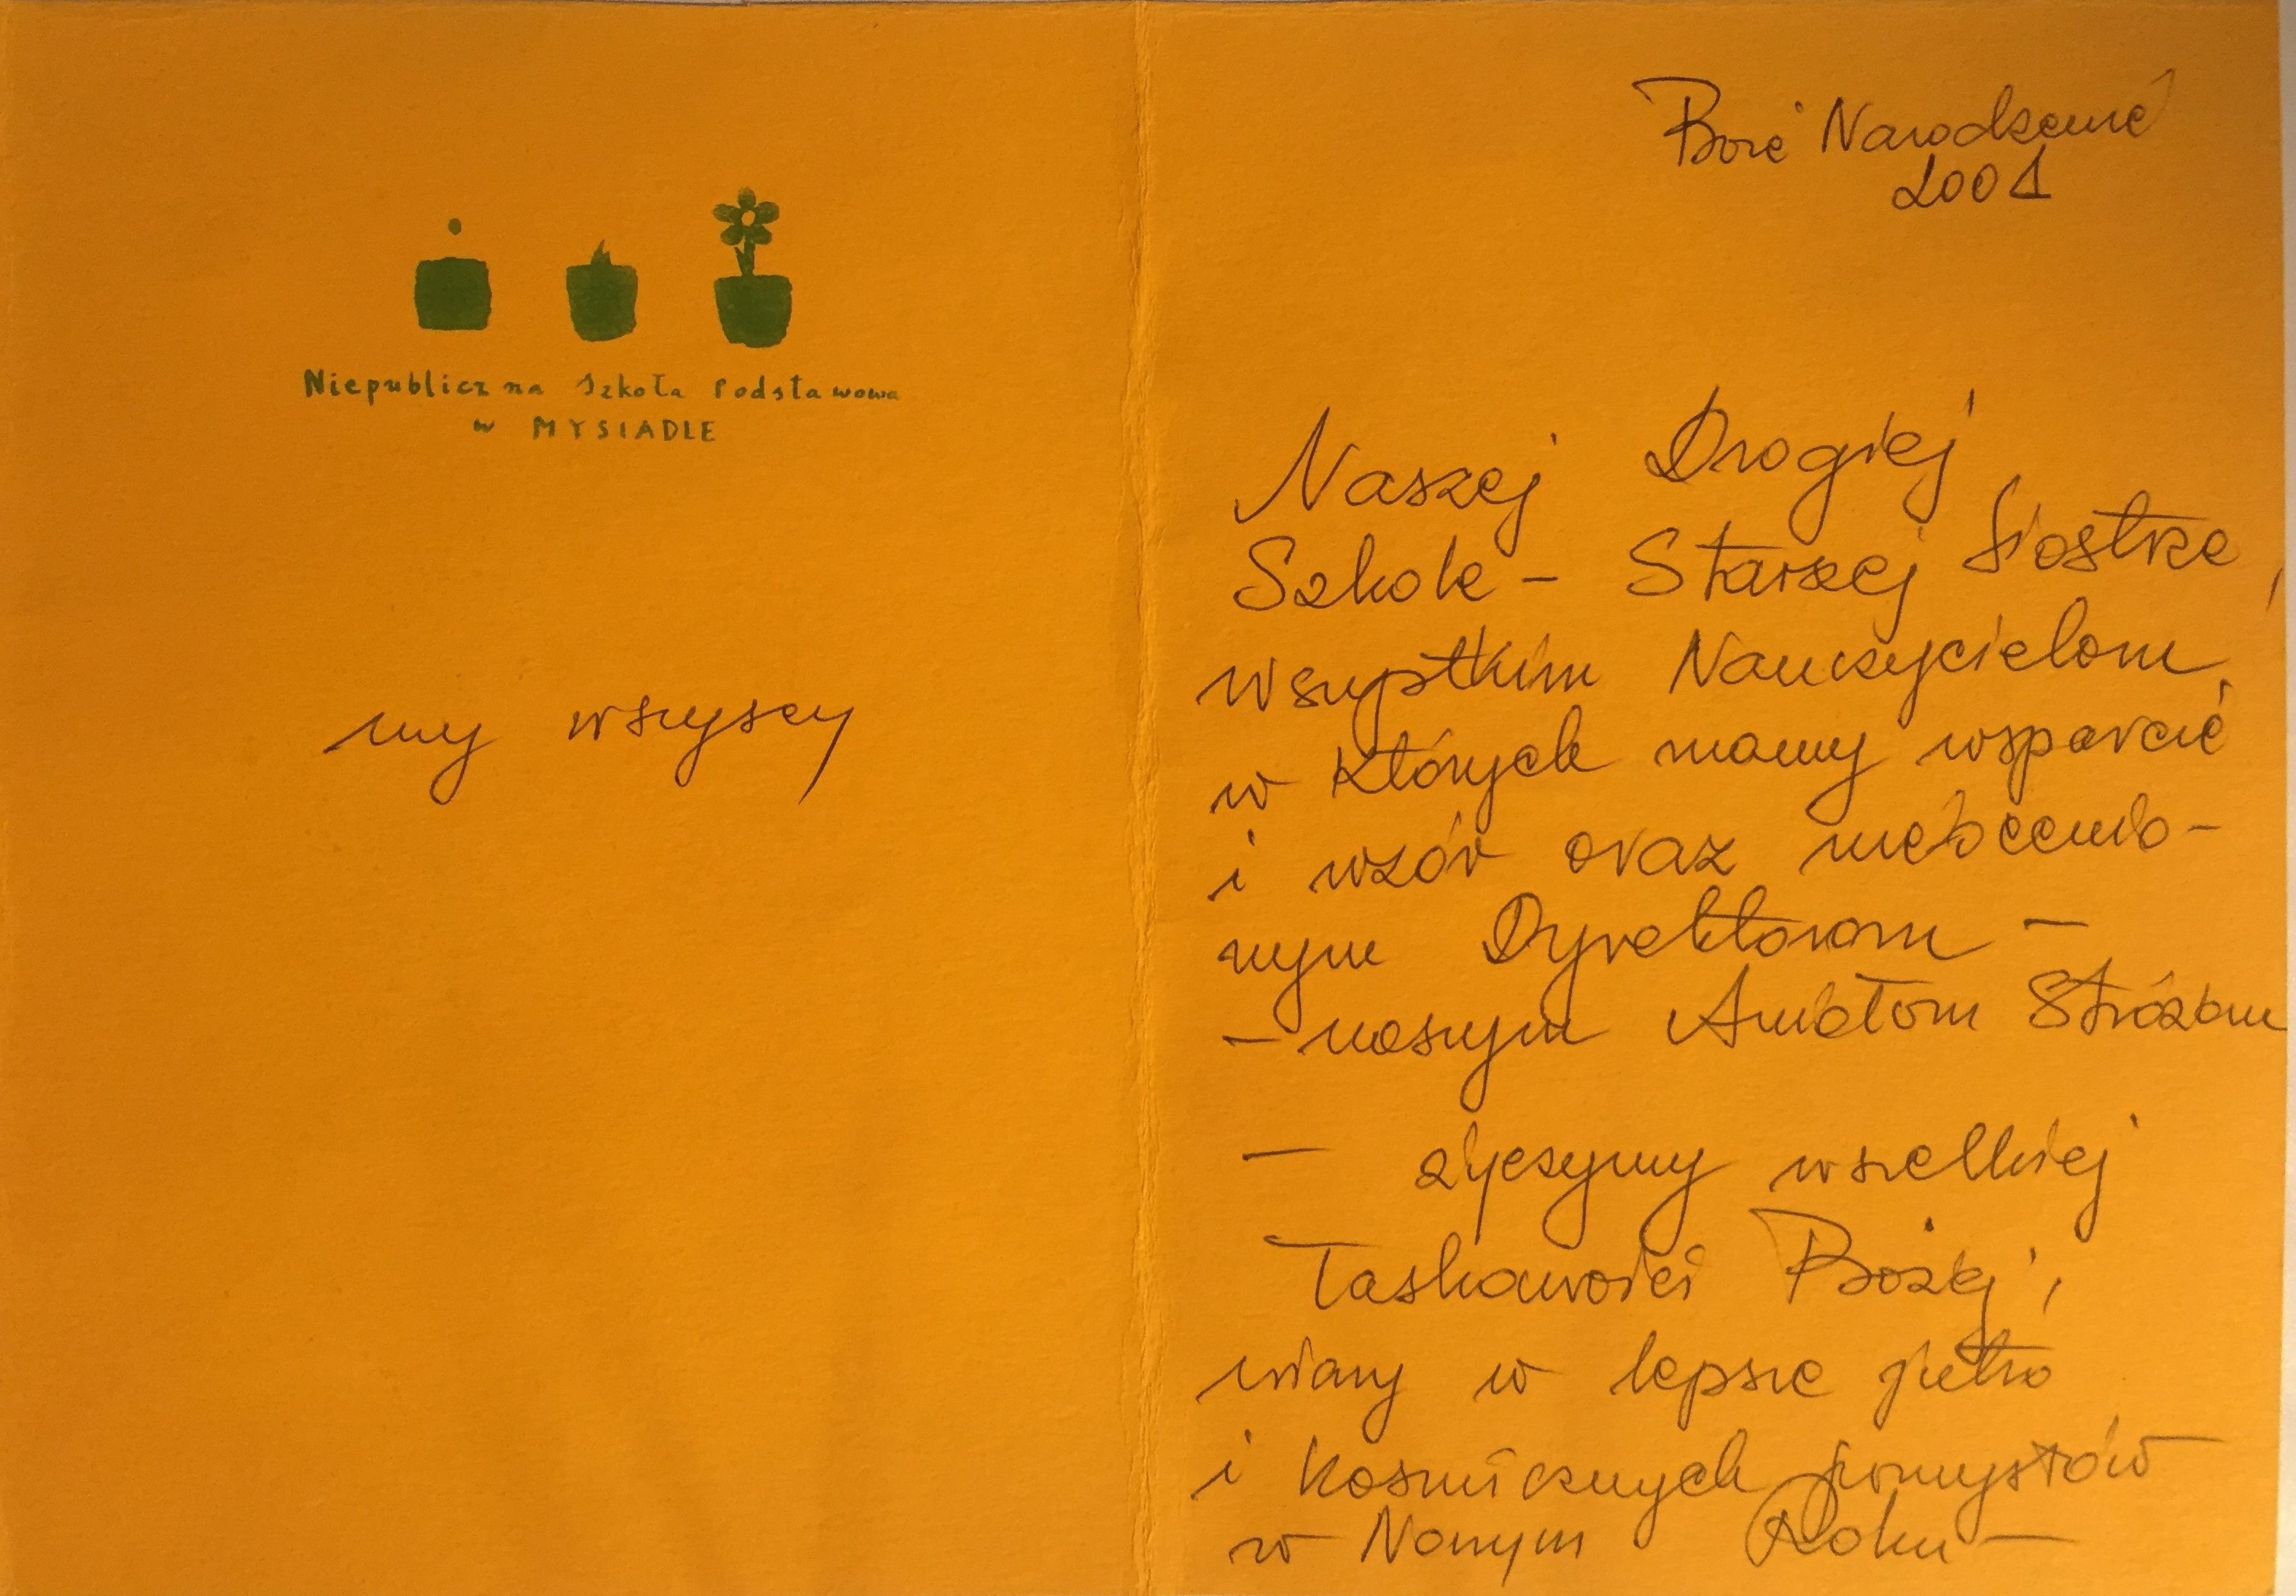 Niepubliczna Szkoła Podstawowa
w MYSIADLE
my wszyscy
Boże Narodzenie
2001
Naszej Drogiej
Szkole - Starszej Siostrze,
wszystkim Nauczycielom,
w których mamy wsparcie
i wzór oraz nieocenio-
nym Dyrektorom -
- naszym Aniołom Stróżom
- życzymy wszelkiej
Łaskawości Bożej,
wiary w lepsze jutro
i kosmicznych pomysłów
w Nowym Roku -